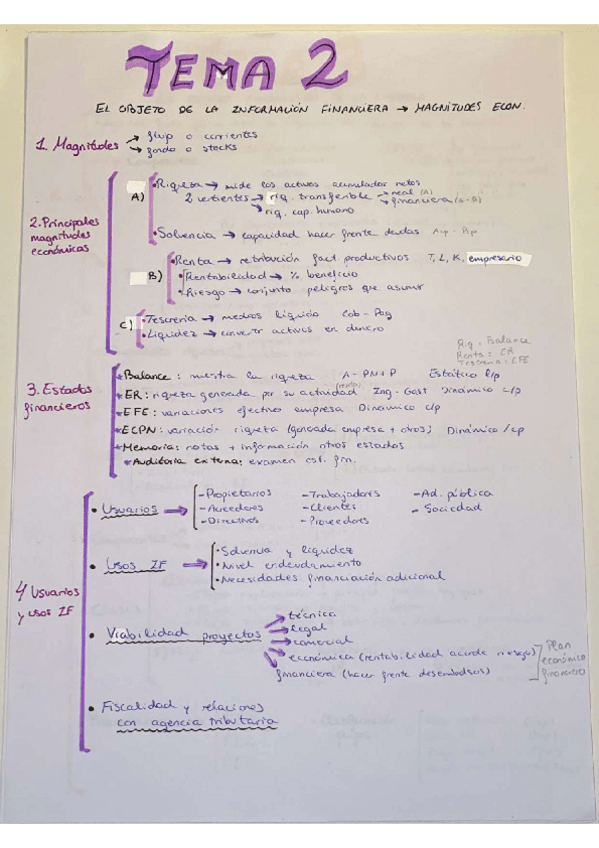 TEMA 2
EL OBJETO DE LA INFORMACIÓN FINANCIERA → MAGNITUDES ECON.
1. Magnitudes → flujo o corrientes
→ fondo o stocks
2. Principales magnitudes económicas
A) • Riqueza → mide los activos acumulados netos
2 vertientes → riq. transferible → real (A)
→ financiera (A-P)
→ riq. cap. humano
• Solvencia → capacidad hacer frente deudas
B) • Renta → retribución fact. productivos T, L, K, empresario
• Rentabilidad → % beneficio
• Riesgo → conjunto peligros que asumir
C) • Tesorería → medios líquido Cob - Pag
• Liquidez → convertir activos en dinero
Riq: Balance
Renta: CR
Tesorería: EFE
3. Estados financieros
• Balance: muestra la riqueza A - PN + P Estático l/p
• ER: riqueza generada por su actividad (renta) Ing - Gast Dinámico c/p
• EFE: variaciones efectivo empresa Dinámico c/p
• ECPN: variación riqueza (generada empresa + otros) Dinámico /cp
• Memoria: notas + información otros estados
• Auditoria externa: examen est. fin.
4 Usuarios y usos IF
• Usuarios → - Propietarios - Trabajadores - Ad. pública
- Acreedores - Clientes - Sociedad
- Directivos - Proveedores
• Usos IF → • Solvencia y liquidez
• Nivel endeudamiento
• Necesidades financiación adicional
• Viabilidad proyectos → técnica
→ legal
→ comercial
→ económica (rentabilidad acorde riesgo)
financiera (hacer frente desembolsos)
Plan económico financiero
• Fiscalidad y relaciones
con agencia tributaria